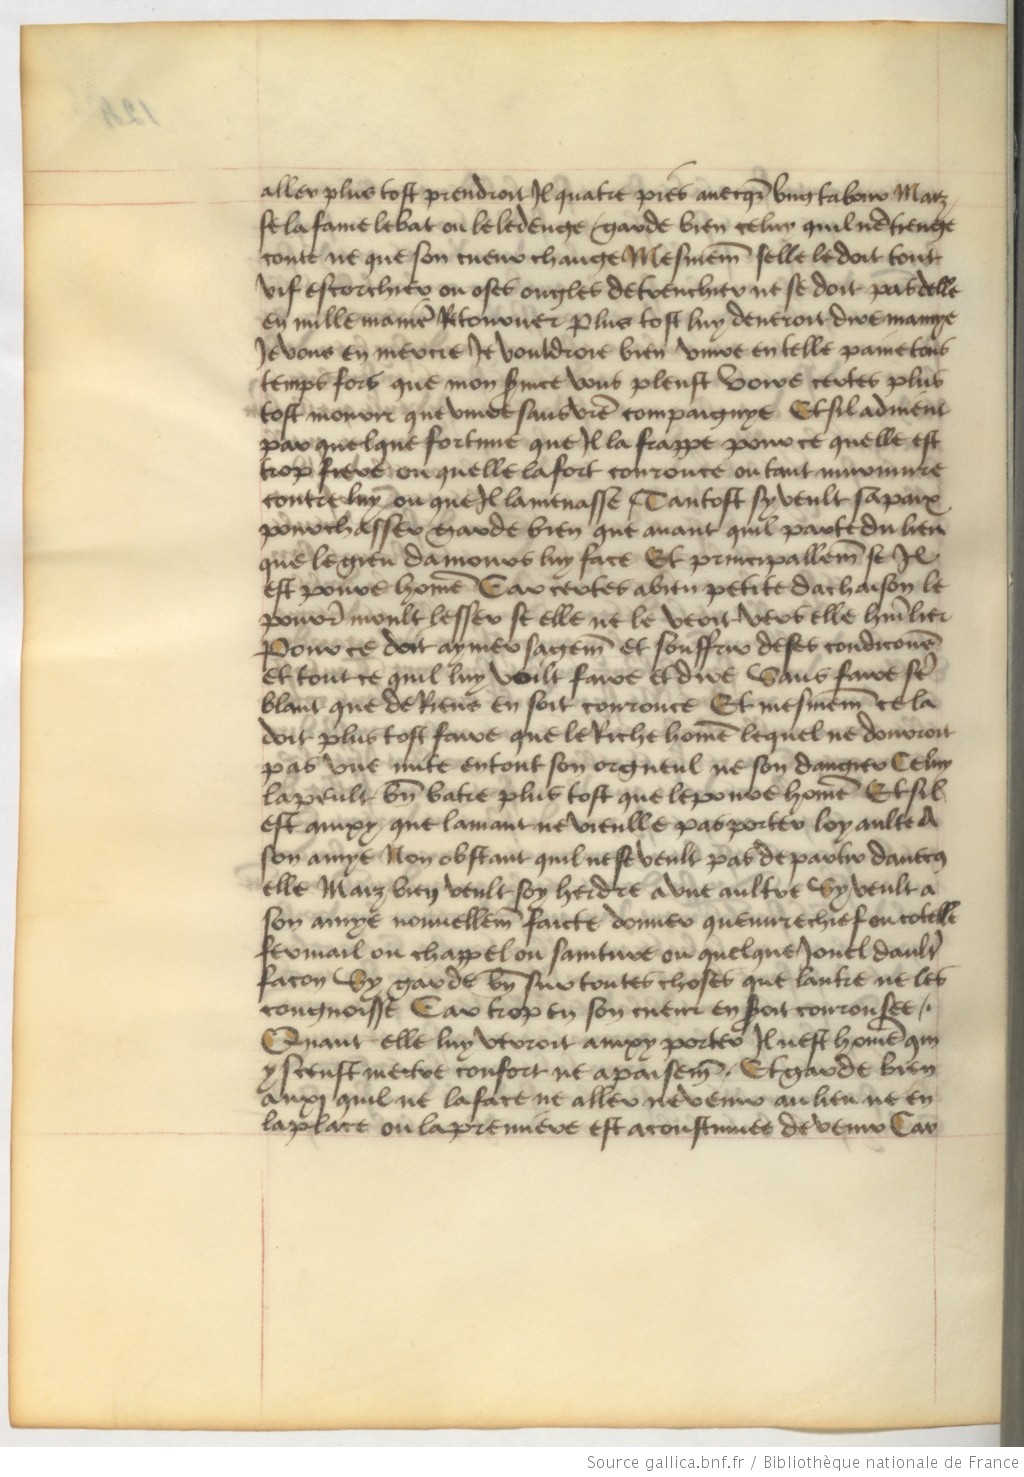 aller plus tost prendroit Il quatre pies auecq̄s vng tabour Maiz
se la fame le bat ou le ledenge garde bien celuy quil ne tienge
conte ne que son cueur change Mesmem̄ selle le doit tout
vif escorchier ou oses ongles detrenchier ne se doit pas delle
en nulle manie᷑ Retourner Plus tost luy deueroit dire mamye
Je vous en mercie Je vouldroie bien viure en telle paine tous
temps fors que mon seruice vous pleust Voire certes plus
tost mourir que viure sans vr̄e compaignye Et sil aduient
par quelque fortune que Il la frappe pour ce quelle est
trop fiere ou quelle la fort courouce ou tant murmure
contre luy ou que Il la menasse Tantost sy veult sa paix
pourchasser garde bien que auant quil parte du lieu
que le gieu damours luy face Et principallem̄ se Il
est poure home᷑ Car certes a bien petite dachaison le
pourr̄ moult lesser se elle ne le veoit vers elle hūlier
Pour ce doit aymer sagem̄ et souffrir de ses condicons̄
et tout ce quil luy voilt faire et dire Sans faire sē
blant que de Riens en soit courouce Et mesmem̄ ce la
doit plus tost faire que le Riche home᷑ lequel ne donroit
pas vne mite en tout son orgueul ne son dangier Celuy
la peult bn̄ batre plus tost que le poure home᷑ Et sil
est ainxy que lamant ne vieulle pas porter loyaulte A
son amye Non obstant quil ne se veult pas departir dauecq̄
elle Maiz bien veult soy herdre a vne aultre Sy veult a
son amye nouuellem̄ faicte donner queuurechief ou cotelle
fermail ou chappel ou sainture ou quelque Jouel daultr̄
facon Sy garde bn̄ sur toutes choses que lautre ne les
congnoisse Car trop en son cueur en seroit courousee /.
Quant elle luy verroit ainxy porter Il nest home᷑ qui
y sceust mectre confort ne apaisem̄. Et garde bien
auxi quil ne la face ne aller ne venir au lieu ne en
la place ou la premiere est acoustumee de venir Car
Source gallica.bnf.fr / Bibliothèque nationale de France